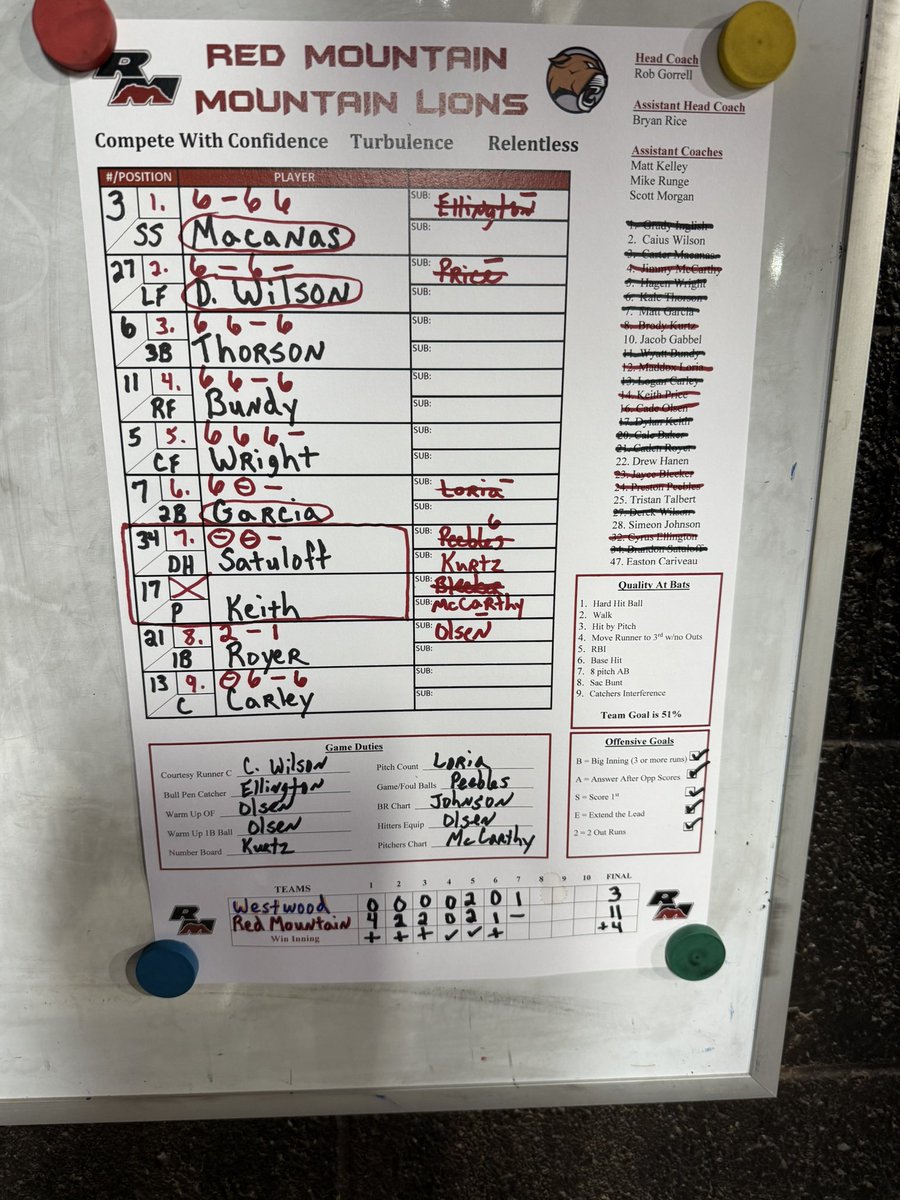 RM
RED MOUNTAIN
MOUNTAIN LIONS
Compete With Confidence Turbulence Relentless
Head Coach
Rob Gorrell
Assistant Head Coach
Bryan Rice
Assistant Coaches
Matt Kelley
Mike Runge
Scott Morgan
#/POSITION PLAYER
3 1. 6 - 6 6 SUB: Ellington
SS Macanas SUB:
27 2. 6 - 6 - SUB: Price
LF D. Wilson SUB:
6 3. 6 6 - 6 SUB:
3B Thorson SUB:
11 4. 6 6 - 6 SUB:
RF Bundy SUB:
5 5. 6 6 6 - SUB:
CF Wright SUB:
7 6. 6 ⊖ - SUB: Loria
2B Garcia SUB:
34 7. ⊖ ⊖ - SUB: Peebles 6
DH Satuloff SUB: Kurtz
17 SUB: Bleeker
P Keith SUB: McCarthy
21 8. 2 - 1 SUB: Olsen
1B Royer SUB:
13 9. ⊖ 6 - 6 SUB:
C Carley SUB:
1. Grady Inglish
2. Caius Wilson
3. Carter Macanas
4. Jimmy McCarthy
5. Hagen Wright
6. Kale Thorson
7. Matt Garcia
8. Brody Kurtz
10. Jacob Gabbel
11. Wyatt Bundy
12. Maddox Loria
13. Logan Carley
14. Keith Price
16. Cade Olsen
17. Dylan Keith
20. Cale Baker
21. Caden Royer
22. Drew Hanen
23. Jayce Bleeker
24. Preston Peebles
25. Tristan Talbert
27. Derek Wilson
28. Simeon Johnson
32. Cyrus Ellington
34. Brandon Satuloff
47. Easton Cariveau
Quality At Bats
1. Hard Hit Ball
2. Walk
3. Hit by Pitch
4. Move Runner to 3rd w/no Outs
5. RBI
6. Base Hit
7. 8 pitch AB
8. Sac Bunt
9. Catchers Interference
Team Goal is 51%
Offensive Goals
B = Big Inning (3 or more runs) ✓
A = Answer After Opp Scores ✓
S = Score 1st ✓
E = Extend the Lead ✓
2 = 2 Out Runs ✓
Game Duties
Courtesy Runner C C. Wilson Pitch Count Loria
Bull Pen Catcher Ellington Game/Foul Balls Peebles
Warm Up OF Olsen BR Chart Johnson
Warm Up 1B Ball Olsen Hitters Equip Olsen
Number Board Kurtz Pitchers Chart McCarthy
TEAMS 1 2 3 4 5 6 7 8 9 10 FINAL
Westwood 0 0 0 0 2 0 1 3
Red Mountain 4 2 2 0 2 1 - 11
Win Inning + + + ✓ ✓ + +4
RM
RM